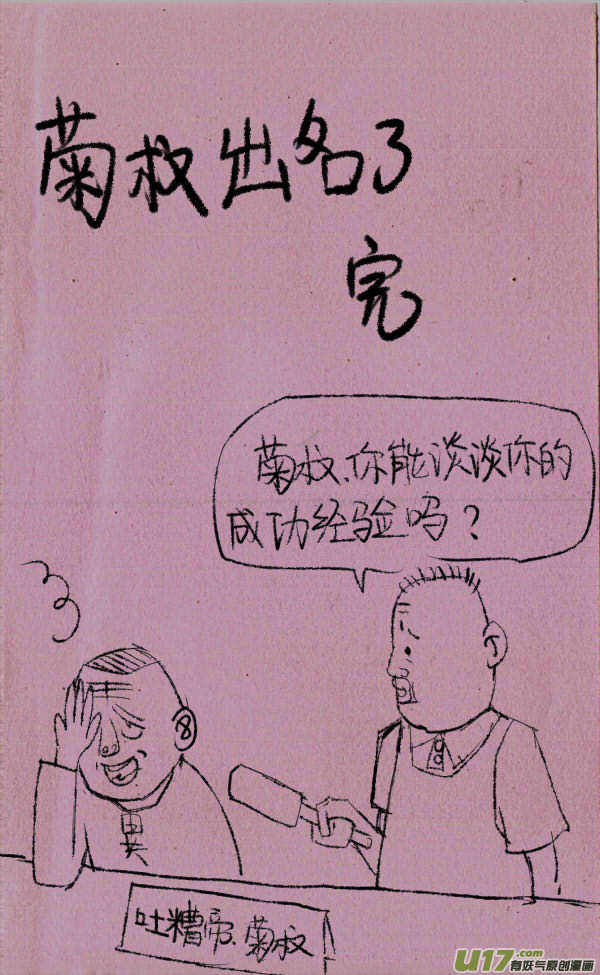 菊叔出名了
完
菊叔、你能谈谈你的
成功经验吗？
異
吐糟帝、菊叔
U17.com
有妖气原创漫画